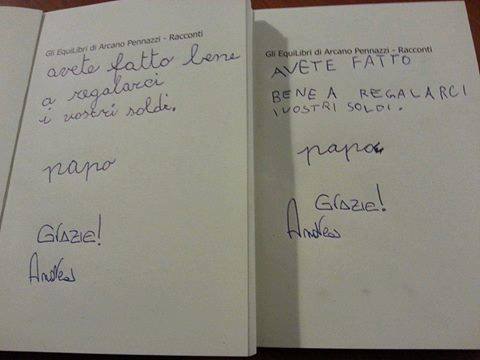 Gli EquiLibri di Arcano Pennazzi - Racconti
avete fatto bene
a regalarci
i vostri soldi.
papo
GRAZIE!
Andrea
Gli EquiLibri di Arcano Pennazzi - Racconti
AVETE FATTO
BENE A REGALARCI
I VOSTRI SOLDI.
papo
GRAZIE!
Andrea